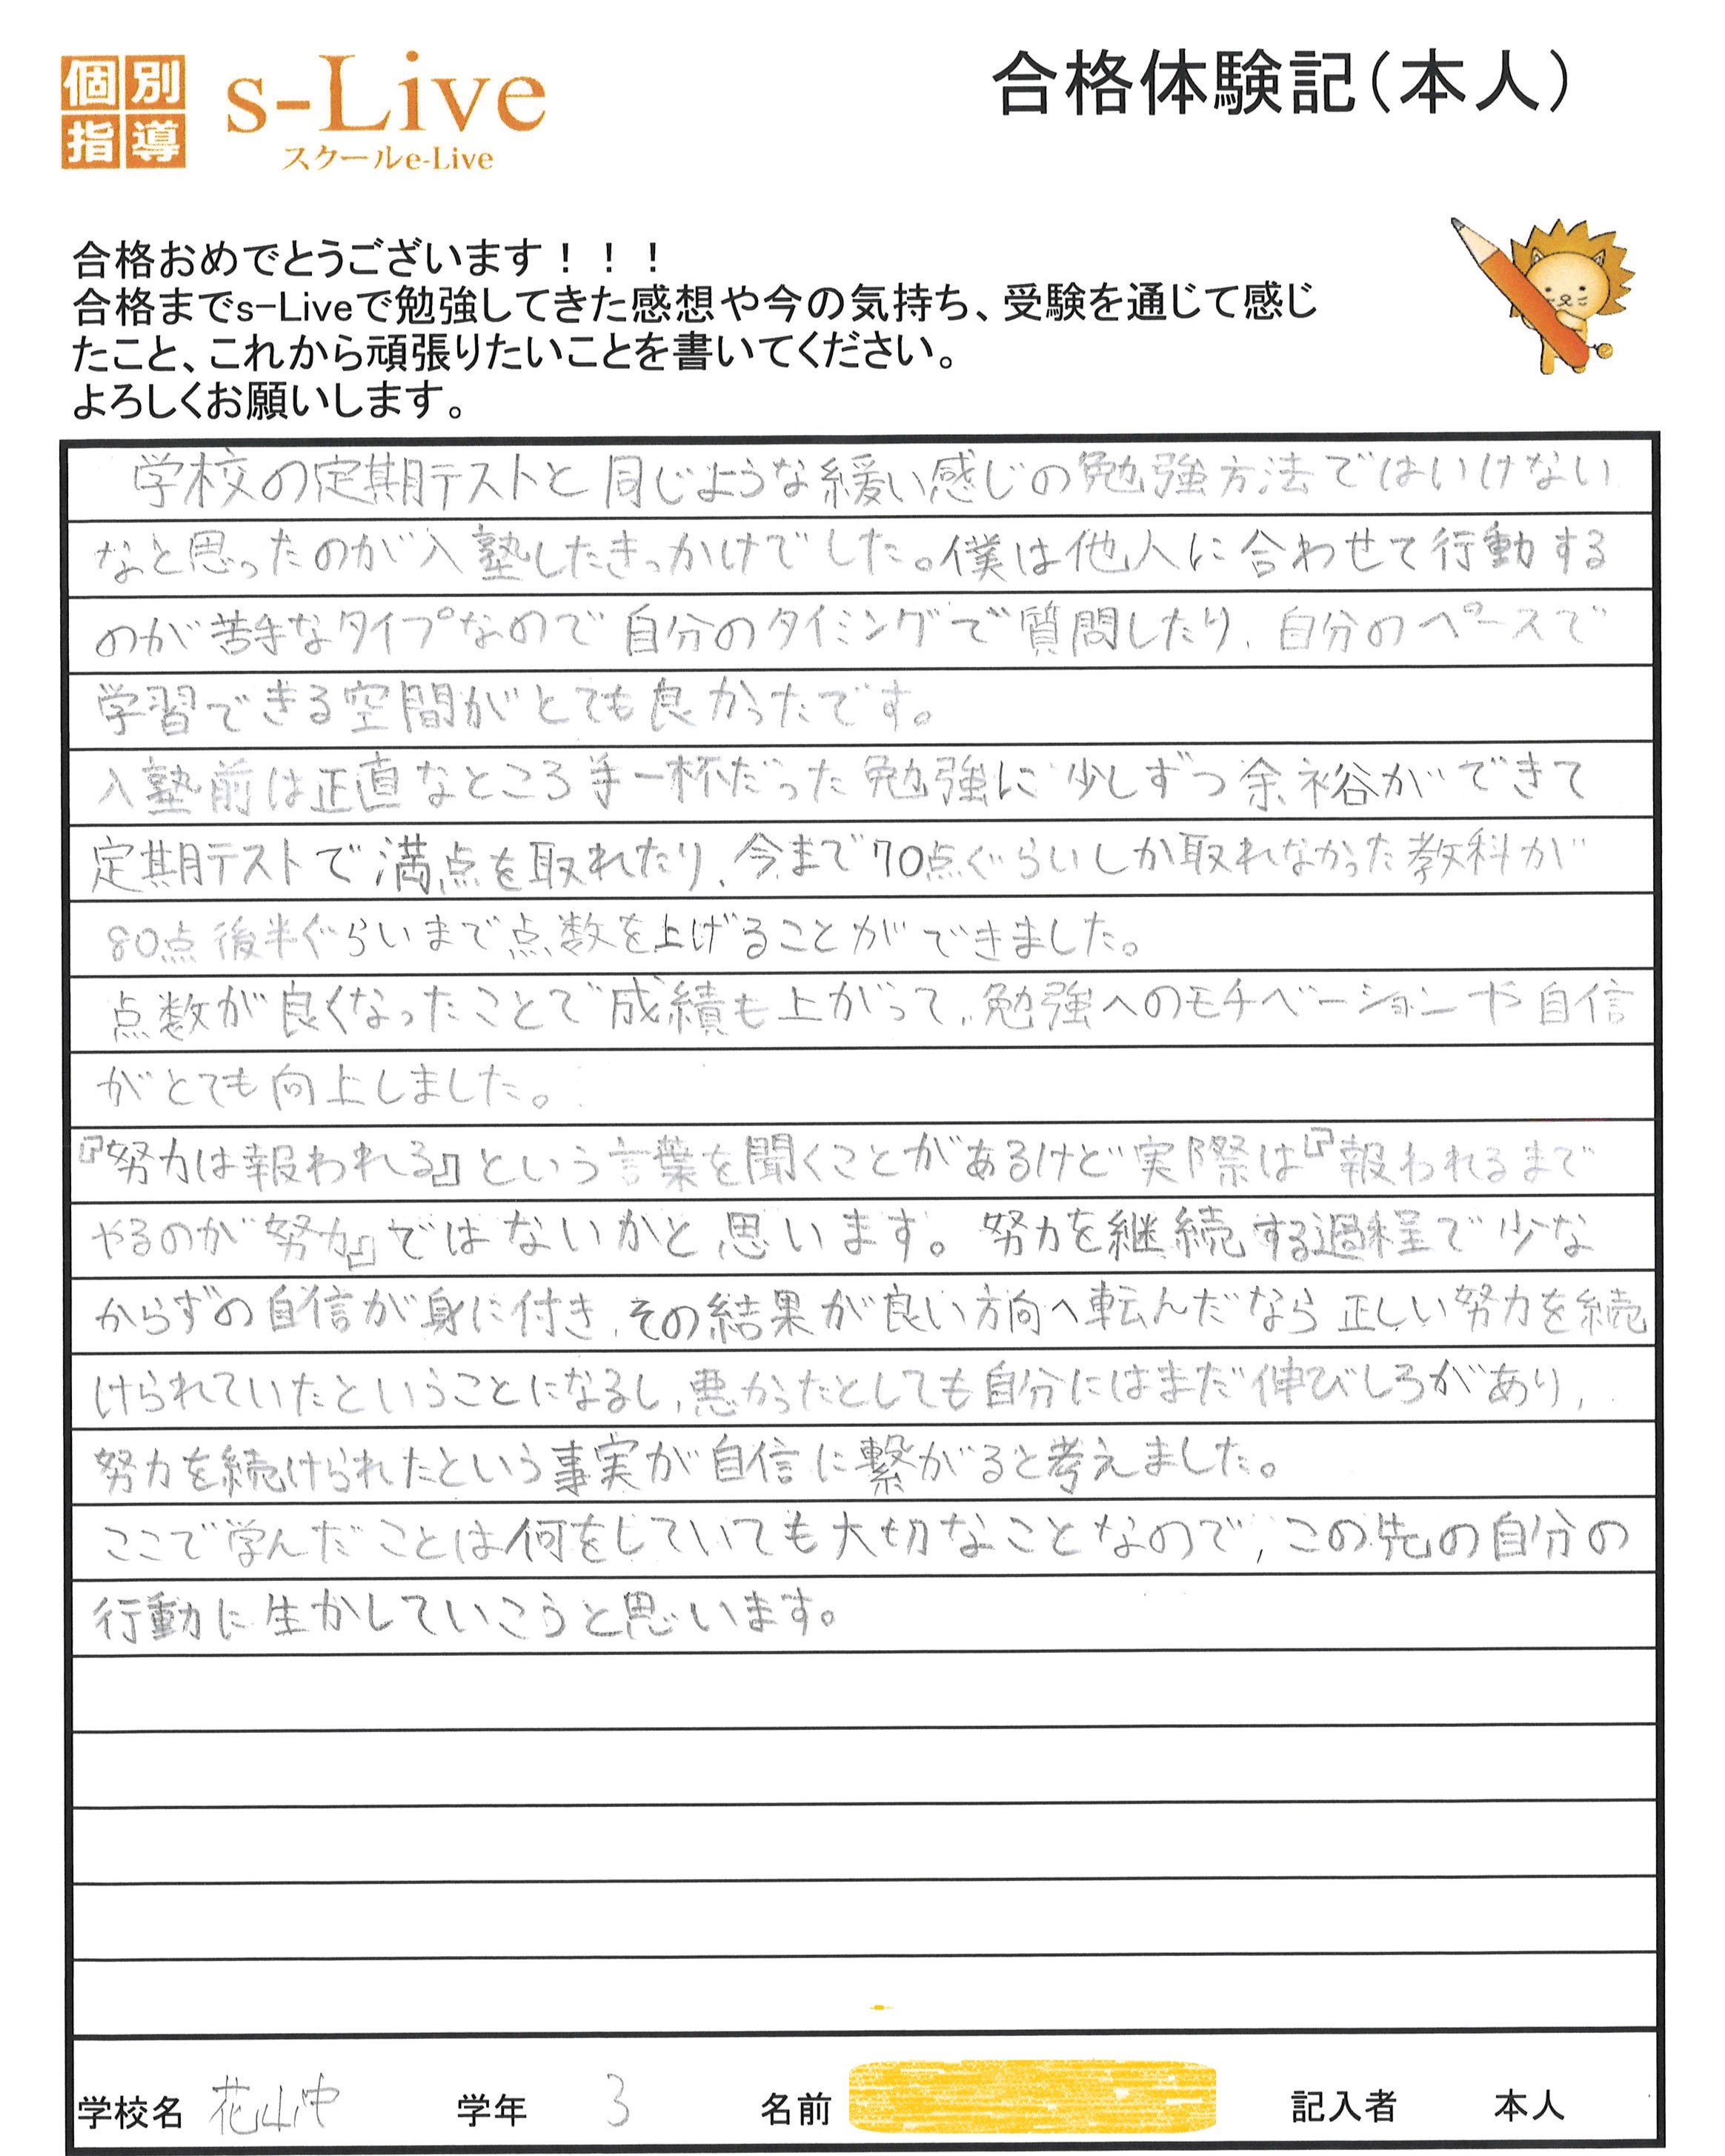 個別
指導
s-Live
スクールe-Live
合格体験記(本人)
合格おめでとうございます！！！
合格までs-Liveで勉強してきた感想や今の気持ち、受験を通じて感じ
たこと、これから頑張りたいことを書いてください。
よろしくお願いします。
学校の定期テストと同じような緩い感じの勉強方法ではいけない
なと思ったのが入塾したきっかけでした。僕は他人に合わせて行動する
のが苦手なタイプなので自分のタイミングで質問したり、自分のペースで
学習できる空間がとても良かったです。
入塾前は正直なところ手一杯だった勉強に少しずつ余裕ができて
定期テストで満点を取れたり、今まで70点ぐらいしか取れなかった教科が
80点後半ぐらいまで点数を上げることができました。
点数が良くなったことで成績も上がって、勉強へのモチベーションや自信
がとても向上しました。
『努力は報われる』という言葉を聞くことがあるけど実際は『報われるまで
やるのが努力』ではないかと思います。努力を継続する過程で少な
からずの自信が身に付き、その結果が良い方向へ転んだなら正しい努力を続
けられていたということになるし、悪かったとしても自分にはまだ伸びしろがあり、
努力を続けられたという事実が自信に繋がると考えました。
ここで学んだことは何をしていても大切なことなので、この先の自分の
行動に生かしていこうと思います。
学校名 花山中 学年 3 名前 記入者 本人